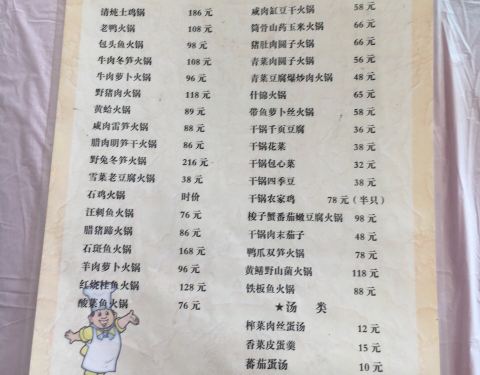 清炖土鸡锅 186 元
老鸭火锅 108 元
包头鱼火锅 98 元
牛肉冬笋火锅 108 元
牛肉萝卜火锅 96 元
野猪肉火锅 118 元
黄蛤火锅 89 元
咸肉雷笋火锅 88 元
腊肉明笋干火锅 86 元
野兔冬笋火锅 216 元
雪菜老豆腐火锅 38 元
石鸡火锅 时价
汪刺鱼火锅 76 元
腊猪蹄火锅 86 元
石斑鱼火锅 168 元
羊肉萝卜火锅 96 元
红烧桂鱼火锅 128 元
酸菜鱼火锅 76 元
咸肉缸豆干火锅 58 元
筒骨山药玉米火锅 66 元
猪肚肉圆子火锅 66 元
青菜肉圆子火锅 56 元
青菜豆腐爆炒肉火锅 48 元
什锦火锅 65 元
带鱼萝卜丝火锅 58 元
干锅千页豆腐 36 元
干锅花菜 38 元
干锅包心菜 32 元
干锅四季豆 38 元
干锅农家鸡 78 元(半只)
梭子蟹番茄嫩豆腐火锅 98 元
干锅肉末茄子 48 元
鸭爪双笋火锅 78 元
黄鳝野山菌火锅 118 元
铁板鱼火锅 88 元
★汤 类
榨菜肉丝蛋汤 12 元
香菜皮蛋羹 15 元
蕃茄蛋汤 10 元